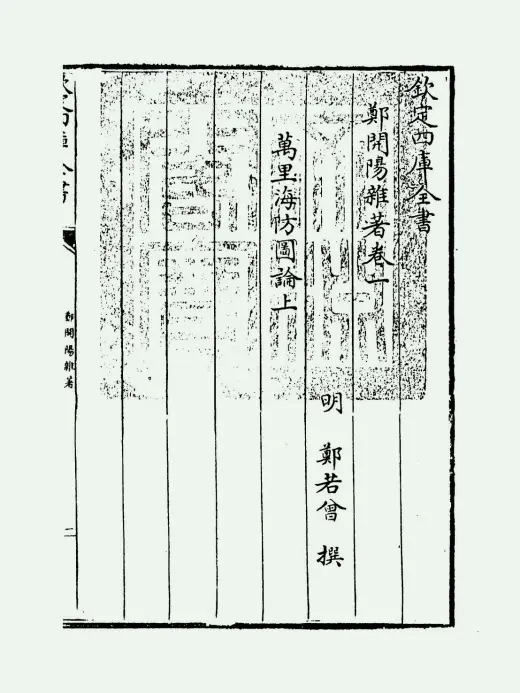 欽定四庫全書
鄭開陽雜著卷一
明 鄭若曾 撰
萬里海防圖論上
欽定四庫全書
鄭開陽雜著
二